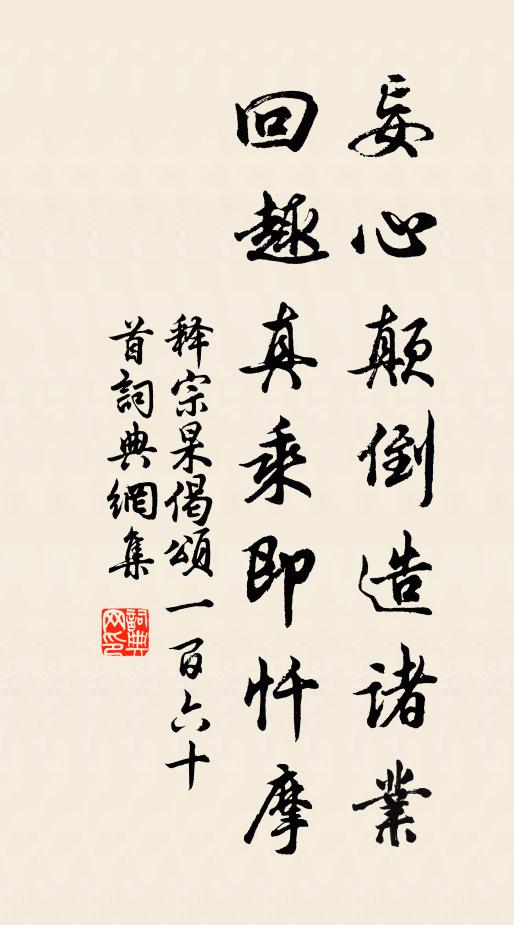 妄心颠倒造诸業
回趣真乘即忏摩
释宗杲偈頌一百六十
首詞典網集
詞典
网印